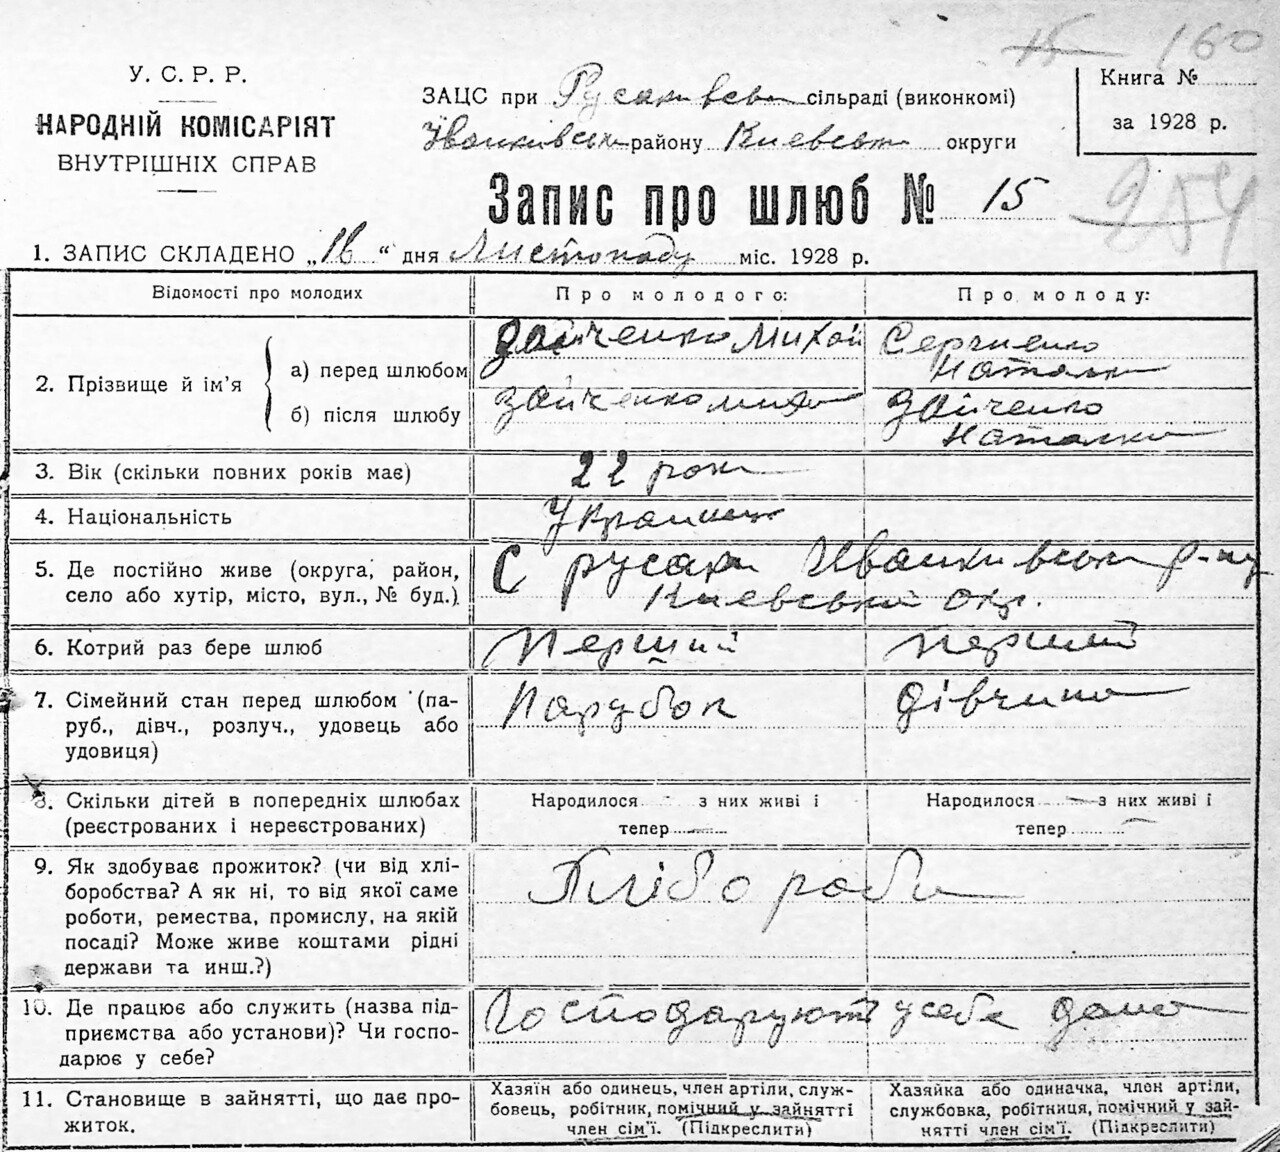 15 160
У. С. Р. Р.
НАРОДНІЙ КОМІСАРІЯТ
ВНУТРІШНІХ СПРАВ
ЗАЦС при Русаківські сільраді (виконкомі)
Іванківськ району Киевськ округи
Книга №
за 1928 р.
Запис про шлюб № 15
254
1. ЗАПИС СКЛАДЕНО „16“ дня Листопаду міс. 1928 р.
Відомості про молодих
Про молодого:
Про молоду:
2. Прізвище й ім’я
а) перед шлюбом
Зайченко Михай
Сергиенко
Наталка
б) після шлюбу
Зайченко Михай
Зайченко
Наталка
3. Вік (скільки повних років має)
22 роки
4. Національність
Украинець
5. Де постійно живе (округа, район,
село або хутір, місто, вул., № буд.)
С русаки Иванківськи р-ну
Киевськи окр.
6. Котрий раз бере шлюб
Перщий
перший
7. Сімейний стан перед шлюбом (па-
руб., дівч., розлуч., удовець або
удовиця)
Парубок
дівчина
8. Скільки дітей в попередніх шлюбах
(реєстрованих і нереєстрованих)
Народилося з них живі і
тепер —
Народилося — з них живі і
тепер —
9. Як здобуває прожиток? (чи від хлі-
боробства? А як ні, то від якої саме
роботи, ремества, промислу, на якій
посаді? Може живе коштами рідні
держави та инш.?)
Хлібороби
10. Де працює або служить (назва під-
приємства або установи)? Чи госпо-
дарює у себе?
Господарюют у себе дома
11. Становище в зайнятті, що дає про-
житок.
Хазяїн або одинець, член артіли, служ-
бовець, робітник, помічний у зайнятті
член сім’ї. (Підкреслити)
Хазяйка або одиначка, член артіли,
службовка, робітниця, помічний у зай-
нятті член сім’ї. (Підкреслити)